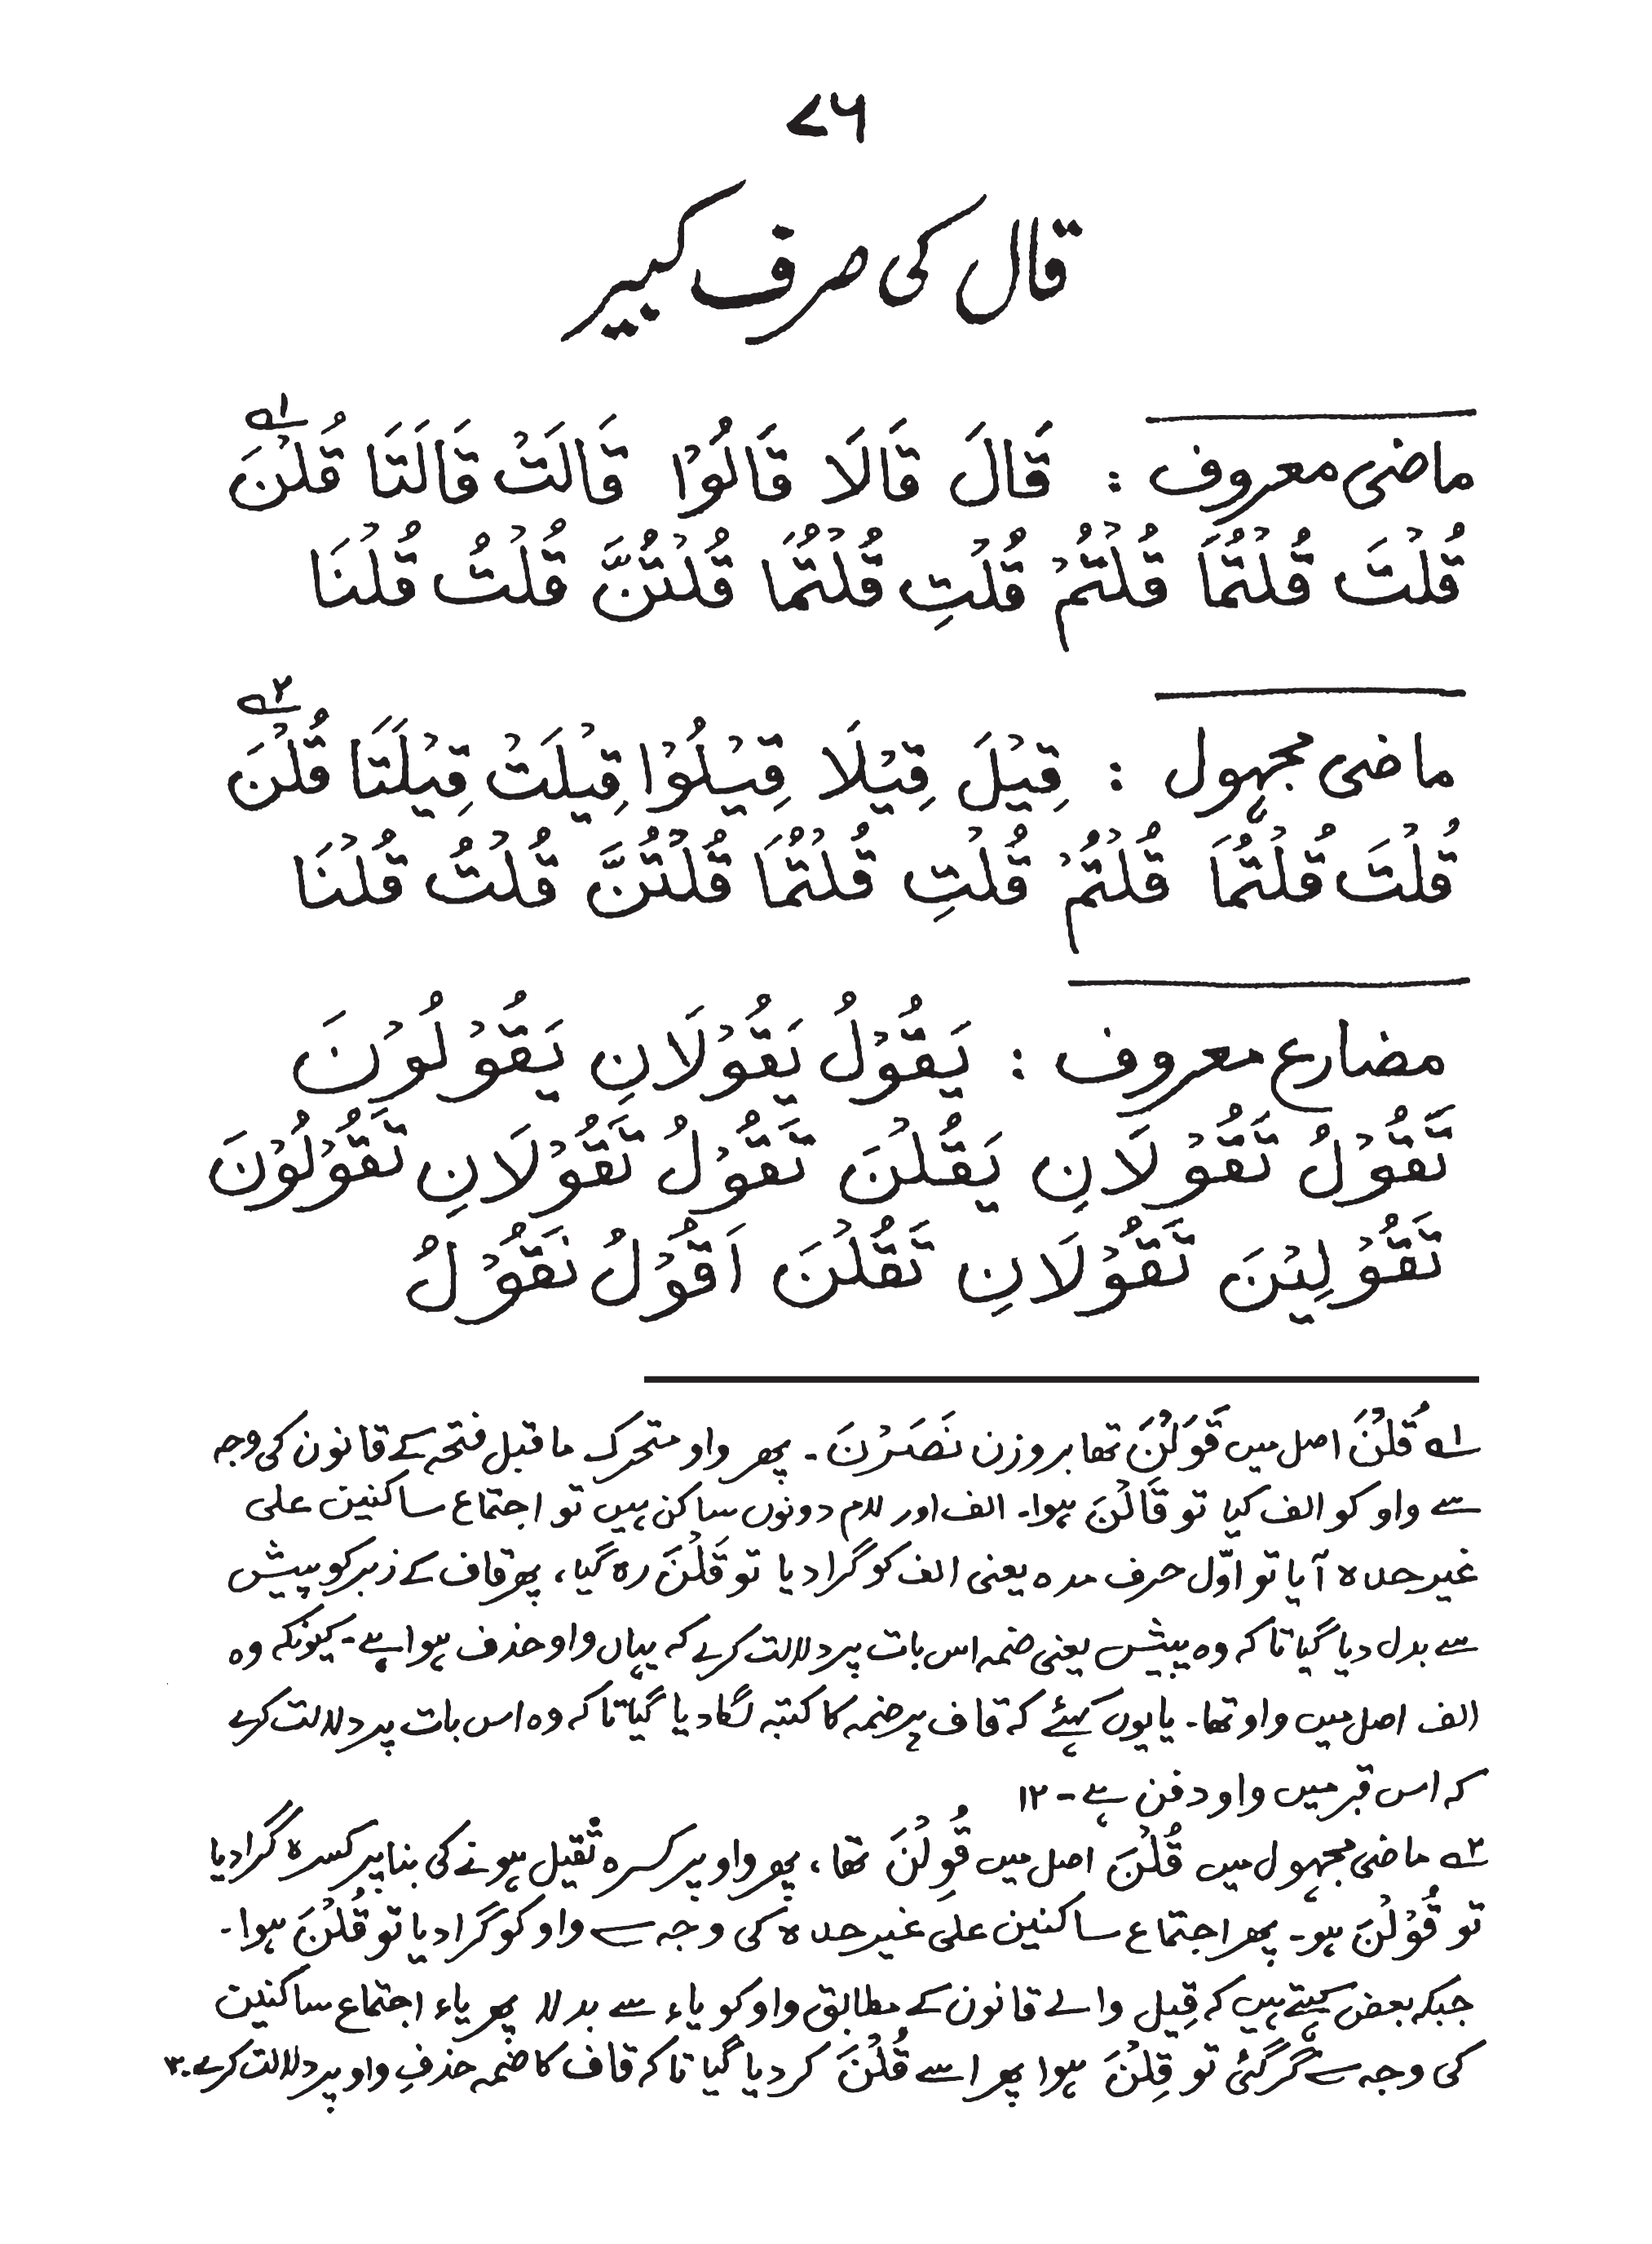 ۷۶
قال کی صرف کبیر
ماضی معروف : قَالَ قَالَا قَالُوْا قَالَتْ قَالَتَا قُلْنَ ؂۱
قُلْتَ قُلْتُمَا قُلْتُمْ قُلْتِ قُلْتُمَا قُلْتُنَّ قُلْتُ قُلْنَا
ماضی مجہول : قِیْلَ قِیْلَا قِیْلُوْا قِیْلَتْ قِیْلَتَا قُلْنَ ؂۲
قُلْتَ قُلْتُمَا قُلْتُمْ قُلْتِ قُلْتُمَا قُلْتُنَّ قُلْتُ قُلْنَا
مضارع معروف : یَقُوْلُ یَقُوْلَانِ یَقُوْلُوْنَ
تَقُوْلُ تَقُوْلَانِ یَقُلْنَ تَقُوْلُ تَقُوْلَانِ تَقُوْلُوْنَ
تَقُوْلِیْنَ تَقُوْلَانِ تَقُلْنَ اَقُوْلُ نَقُوْلُ
؂۱ قُلْنَ اصل میں قَوَلْنَ تھا بروزن نَصَرْنَ ۔ پھر واو متحرک ما قبل فتحہ کے قانون کی وجہ
سے واو کو الف کیا تو قَالْنَ ہوا۔ الف اور لام دونوں ساکن ہیں تو اجتماع ساکنین علی
غیر حدہ آیا تو اوّل حرف مدہ یعنی الف کو گرا دیا تو قَلْنَ رہ گیا ، پھر قاف کے زبر کو پیش
سے بدل دیا گیا تاکہ وہ پیش یعنی ضمہ اس بات پر دلالت کرے کہ یہاں واو حذف ہوا ہے ۔ کیونکہ وہ
الف اصل میں واو تھا ۔ یا یوں کہئے کہ قاف پر ضمہ کا کتبہ لگا دیا گیا تاکہ وہ اس بات پر دلالت کرے
کہ اس قبر میں واو دفن ہے ۔ ۱۲
؂۲ ماضی مجہول میں قُلْنَ اصل میں قُوِلْنَ تھا ، پھر واو پر کسرہ ثقیل ہونے کی بنا پر کسرہ گرا دیا
تو قُوْلْنَ ہو۔ پھر اجتماع ساکنین علی غیر حدہ کی وجہ سے واو کو گرا دیا تو قُلْنَ ہوا ۔
جبکہ بعض کہتے ہیں کہ قِیل والے قانون کے مطابق واو کو یاء سے بدلا پھر یاء اجتماع ساکنین
کی وجہ سے گر گئی تو قِلْنَ ہوا پھر اسے قُلْنَ کر دیا گیا تاکہ قاف کا ضمہ حذفِ واو پر دلالت کرے۔